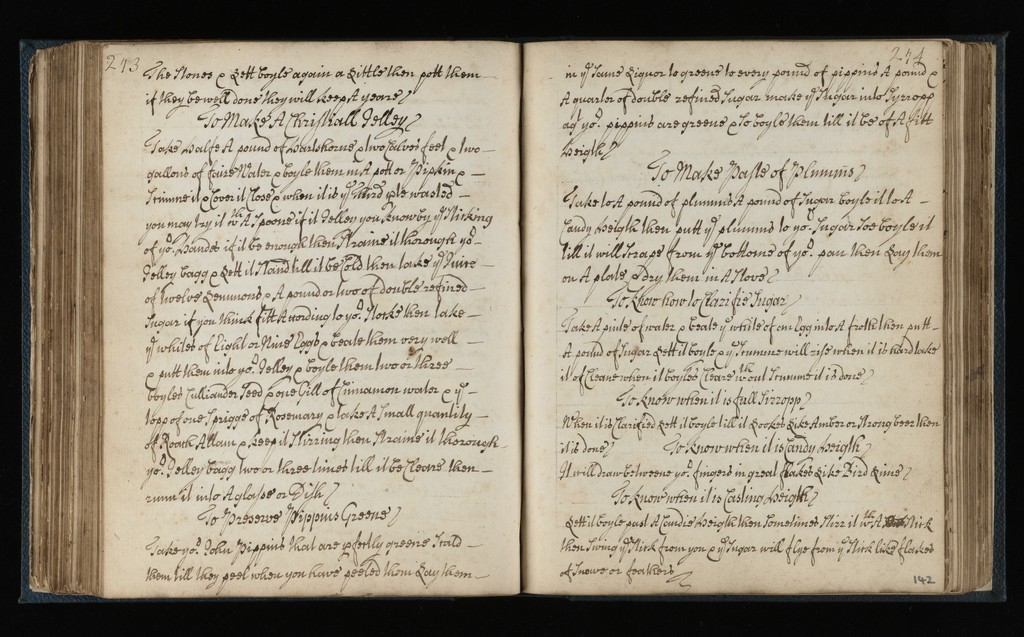 243
The stones & Lett boyle again a Little then pott them
if they be well done they will keep A yeare
To Make A Christall Jelley
Take halfe A pound of Hartshorne & two Calves feet & two
gallons of faire Water & boyle them in A pott or Pipkin &
Scimme it & Cover it Close & when it is ye third pte wasted
you may try it wth A Spoone if it Jelley you know by ye sticking
of yor. Handes if it be enough then straine it thorough yor
Jelley bagg & Lett it stand till it be Cold then take ye Juice
of twelve Lemmons & A pound or two of double refined
Sugar if you think fitt Acording to yor. then take
ye whites of Eight or Nine Eggs & beate them very well
& putt them into yor. Jelley & boyle them two or three
boyles Culliander seed & one Gill of Cinnamon water & ye
topp of one Sprigge of Rosemary & take A small quantity
of Roach Allam & keep it stirring then straine it thorough
yor. Jelley bagg two or three times till it be Cleare then
runn it into A glasse or Dish
To Preserve Pippins Greene
Take yor. John Pippins that are pfectly greene scald
them till they peel when you have peeled them Lay them
244
in ye same Liquor to greene to every pound of pippins A pound &
A quarter of double refined Sugar make ye Sugar into Syrropp
as yor. pippins are greene & so boyle them till it be of A fitt
heigth
To Make Paste of Plumms
Take to A pound of plumms A pound of Sugar boyle it to A
Candy heigth then putt ye plumms to yor. Sugar soe boyle it
till it will scrape from ye bottome of yor. pan then Lay them
on A plate & dry them in A stove
To know how to Clarifie Sugar
Take A pinte of water & beate ye white of an Egg into A froth then putt
A pound of Sugar Lett it boyle & ye scumme will rise when it is hard take
it of Cleane when it boyles Cleare wthout scumme it is done
To know when it is full Sirropp
When it is Clarified Lett it boyle till it Lookes Like Amber or strong beer then
it is done
To know when it is Candy heigth
It will draw betweene yor. fingers in great flakes Like Bird Lime
To know when it is Casting heigth
Lett it boyle past A Candie heigth then sometimes stirr it wth A stick
then swing ye stick from you & ye Sugar will flye from ye stick like flakes
of snowe or feathers
142